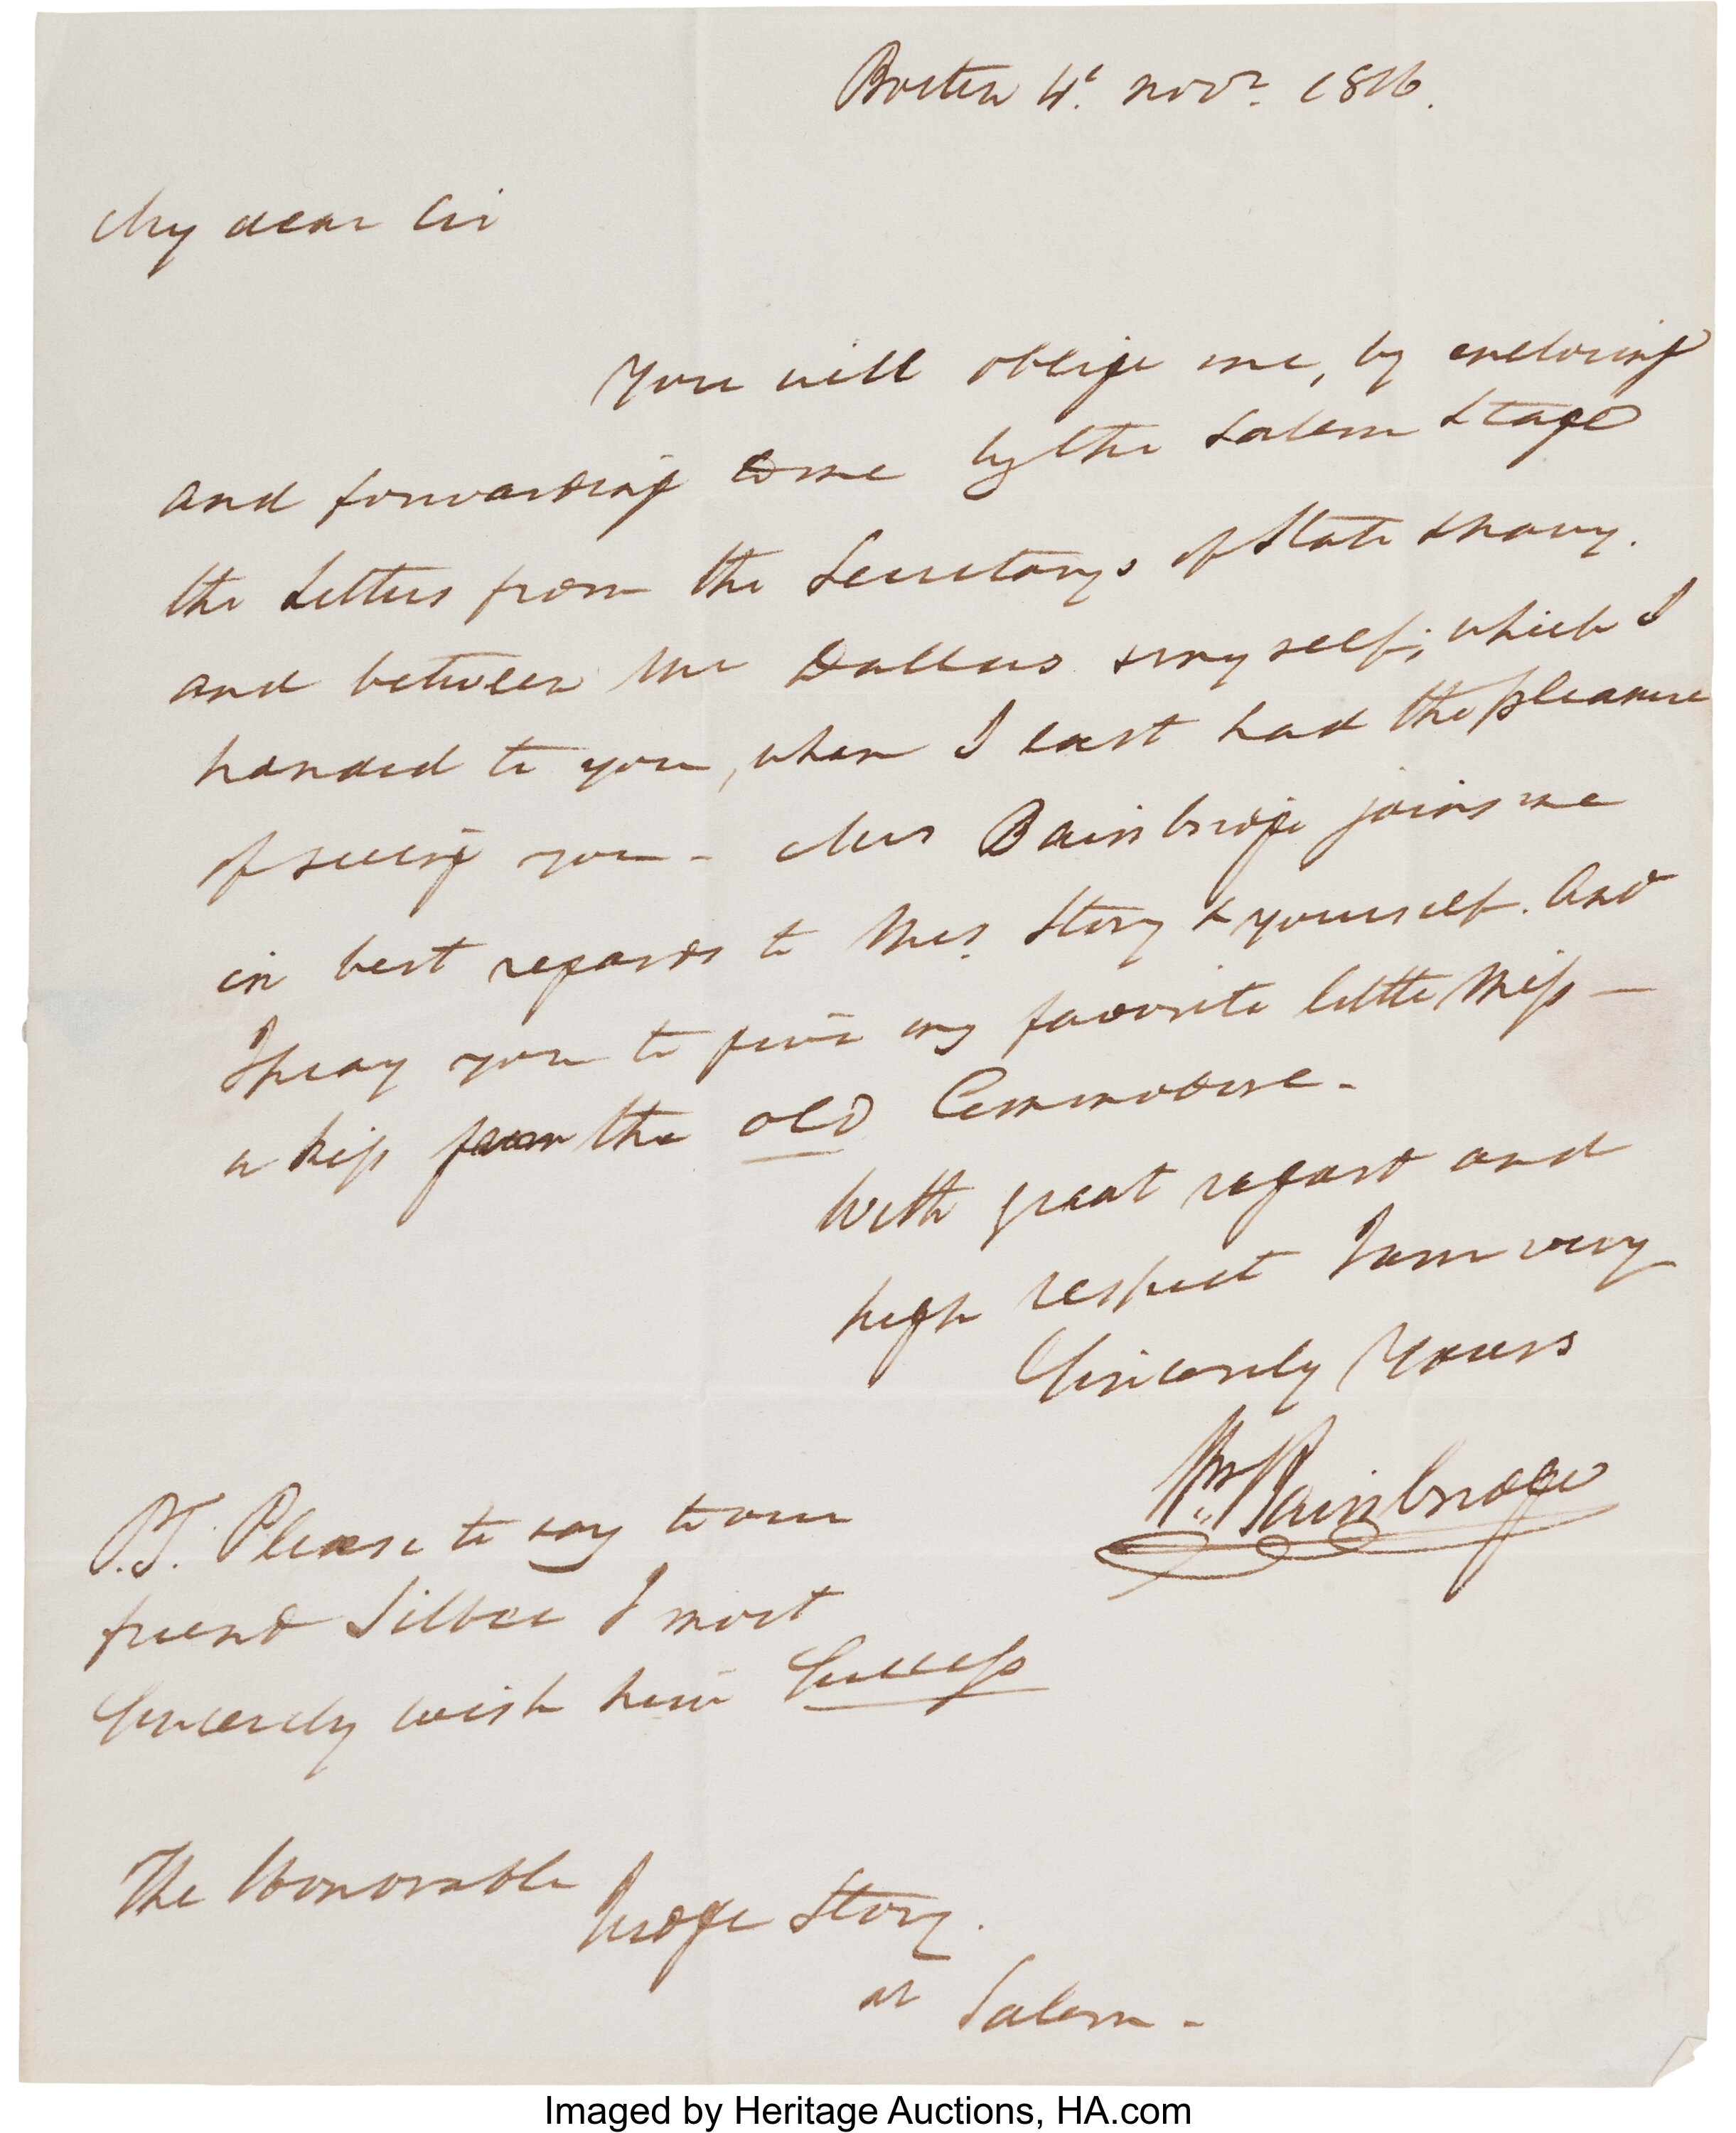 Boston 4t. Novr. 1816.
My dear Sir
You will oblige me, by enclosing
and forwarding to me by the Salem Stage
the Letters from the Secretarys of State & Navy.
and between Mr Dallas & my self; which I
handed to you, when I last had the pleasure
of seeing you - Mrs Bainbridge joins me
in best regards to Mrs. Story & yourself. And
I pray you to give my favorite little Miss —
a kiss from the old Commodore -
With great regard and
high respect I am very
Sincerely Yours
Wm. Bainbridge
P.S. Please to say to our
friend Silbee I most
Sincerely wish him Success
The Honorable
Judge Story.
at Salem -
Imaged by Heritage Auctions, HA.com